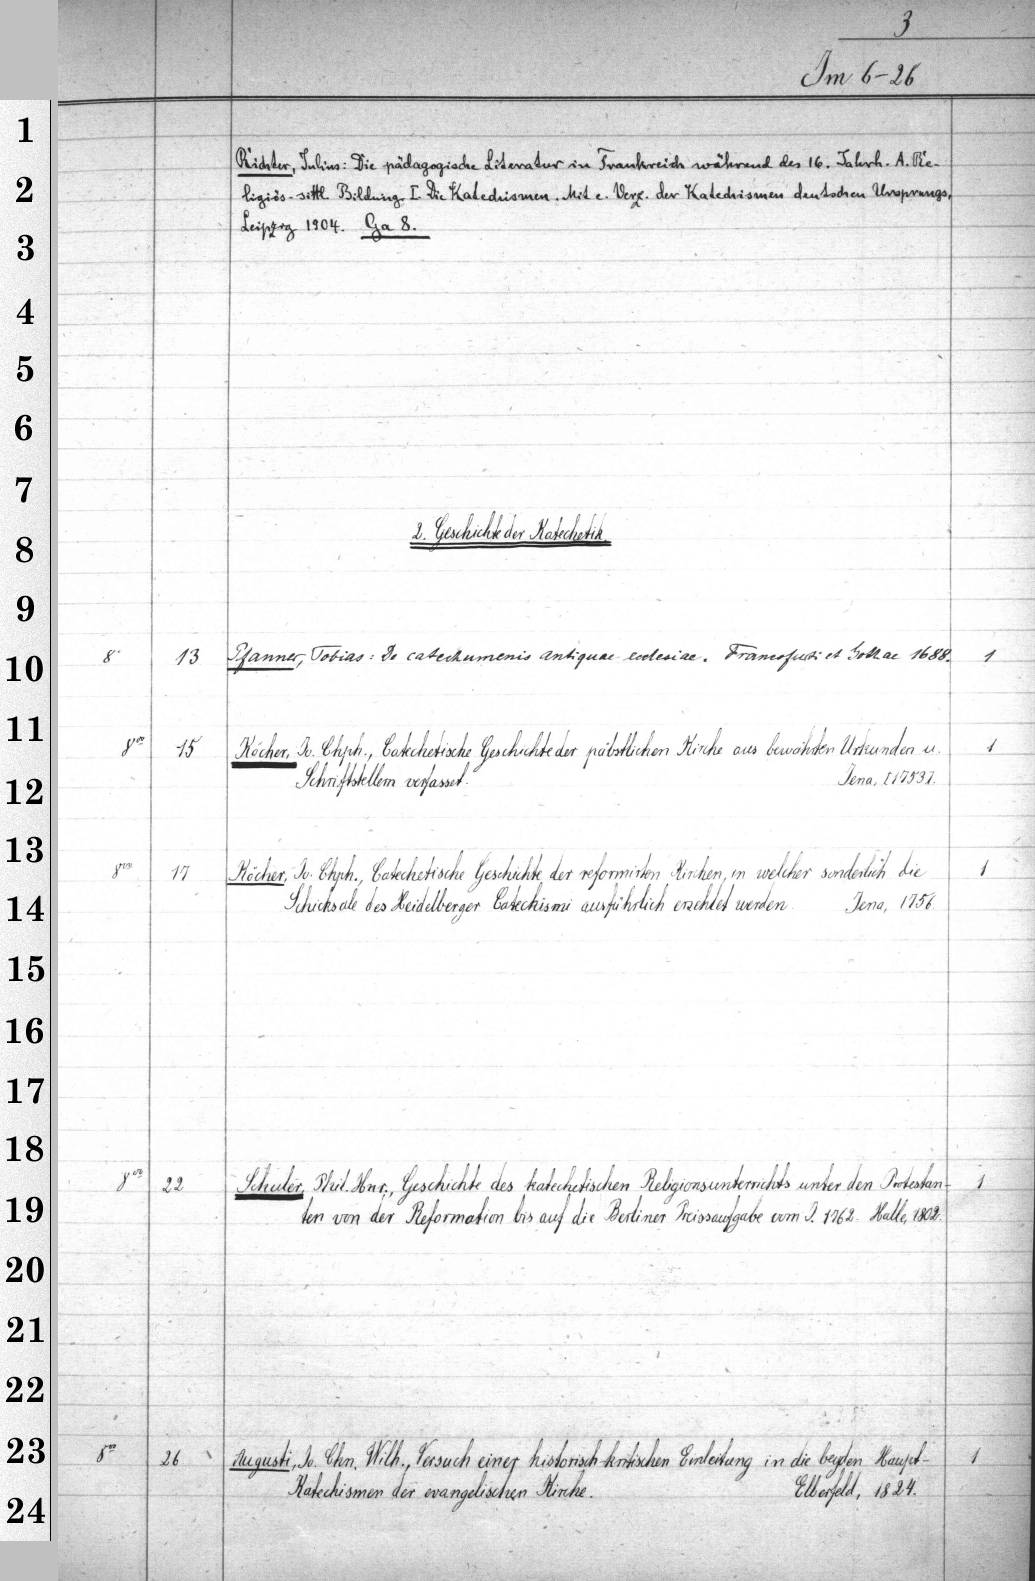 3
Im 6-26
1
2
3
4
5
6
7
8
9
10
11
12
13
14
15
16
17
18
19
20
21
22
23
24
Richter, Julius: Die pädagogische Literatur in Frankreich während des 16. Jahrh. A. Re-
ligiös-sittl. Bildung. I. Die Katechismen. Mit e. Verz. der Katechismen deutschen Ursprungs,
Leipzig 1904. Ga 8.
2. Geschichte der Katechetik.
8° 13 Pfanner, Tobias: De catechumenis antiquae ecclesiae. Francofurti et Gothae 1688. 1
8vo 15 Köcher, Jo. Chph., Catechetische Geschichte der päbstlichen Kirche aus bewährten Urkunden u. 1
Schriftstellern verfasset. Jena, [1753].
8vo 17 Köcher, Jo. Chph., Catechetische Geschichte der reformirten Kirchen, in welcher sonderlich die 1
Schicksale des Heidelberger Catechismi ausführlich erzehlet werden. Jena, 1756.
8vo 22 Schuler, Phil. Hnr., Geschichte des katechetischen Religionsunterrichts unter den Protestan- 1
ten von der Reformation bis auf die Berliner Preissaufgabe vom J. 1762. Halle, 1802.
8vo 26 Augusti, Jo. Chn. Wilh., Versuch einer historisch-kritischen Einleitung in die beyden Haupt- 1
Katechismen der evangelischen Kirche. Elberfeld, 1824.